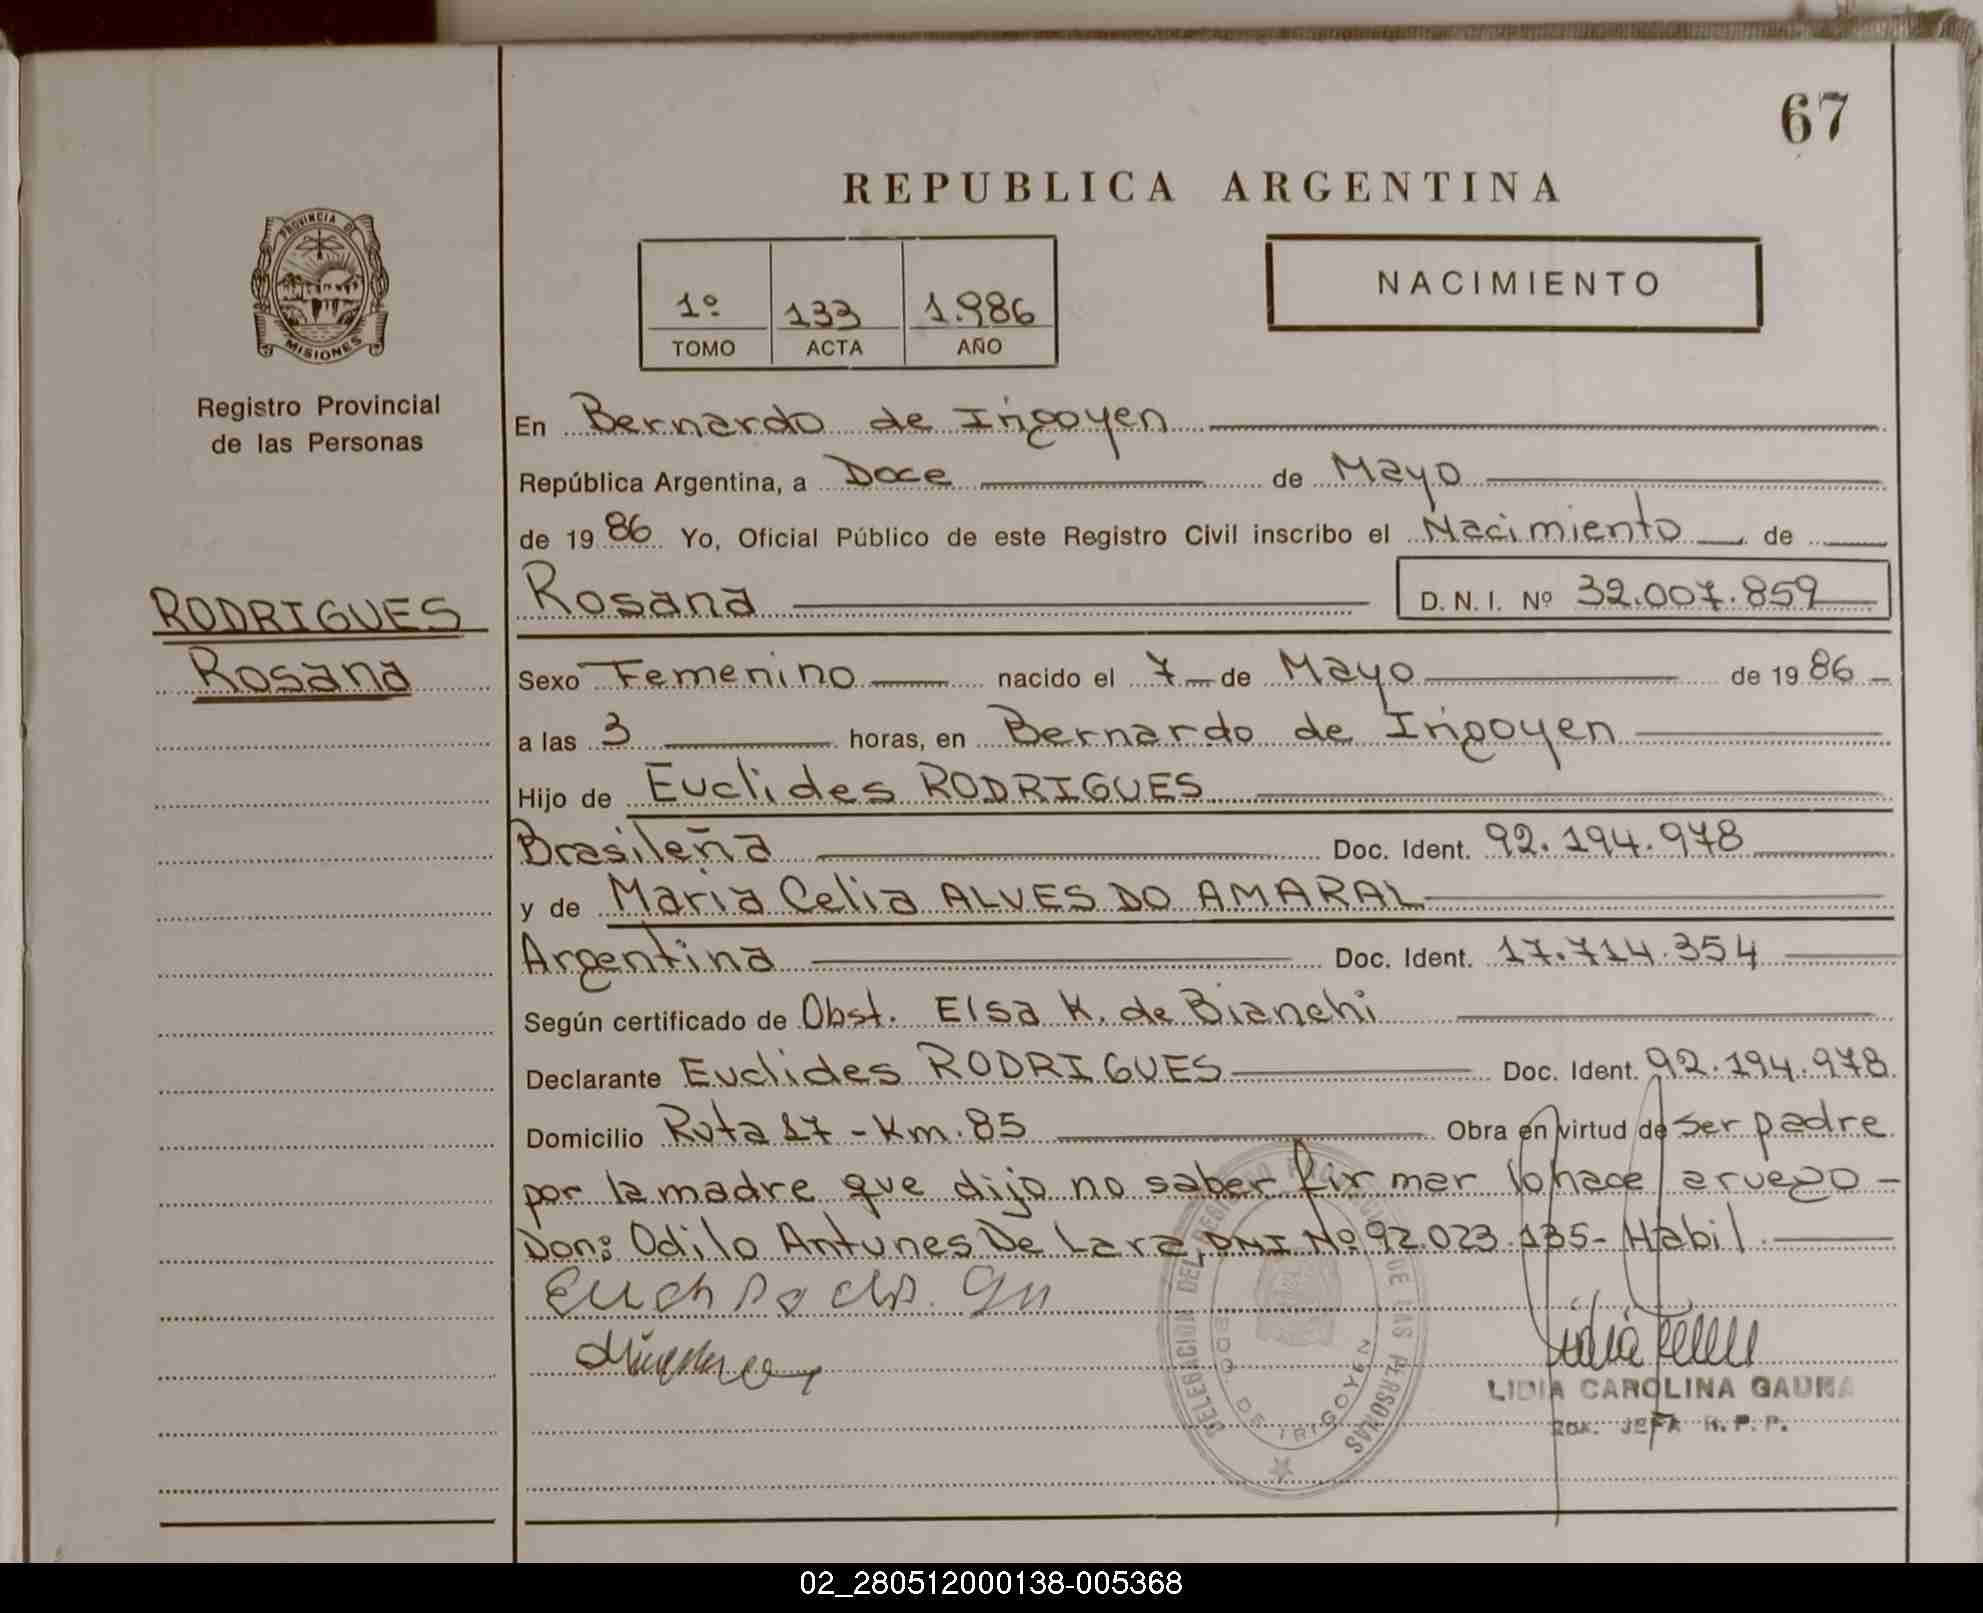 67
REPUBLICA ARGENTINA
PROVINCIA DE
MISIONES
Registro Provincial
de las Personas
1º 133 1.986
TOMO ACTA AÑO
NACIMIENTO
En Bernardo de Irigoyen
República Argentina, a Doce de Mayo
de 19 86 Yo, Oficial Público de este Registro Civil inscribo el Nacimiento de
RODRIGUES
Rosana
Rosana D. N. I. Nº 32.007.859
Sexo Femenino nacido el 7 de Mayo de 19 86
a las 3 horas, en Bernardo de Irigoyen
Hijo de Euclides RODRIGUES
Brasileña Doc. Ident. 92.194.978
y de Maria Celia ALVES DO AMARAL
Argentina Doc. Ident. 17.714.354
Según certificado de Obst. Elsa K. de Bianchi
Declarante Euclides RODRIGUES Doc. Ident. 92.194.978
Domicilio Ruta 17 - Km. 85 Obra en virtud de ser padre
por la madre que dijo no saber firmar lo hace a ruego -
Don: Odilo Antunes De Lara, DNI Nº 92.023.135 - Habil
DELEGACION DEL REGISTRO PROVINCIAL DE LAS PERSONAS
DE IRIGOYEN
LIDIA CAROLINA GAUNA
JEFA R. P. P.
02_280512000138-005368